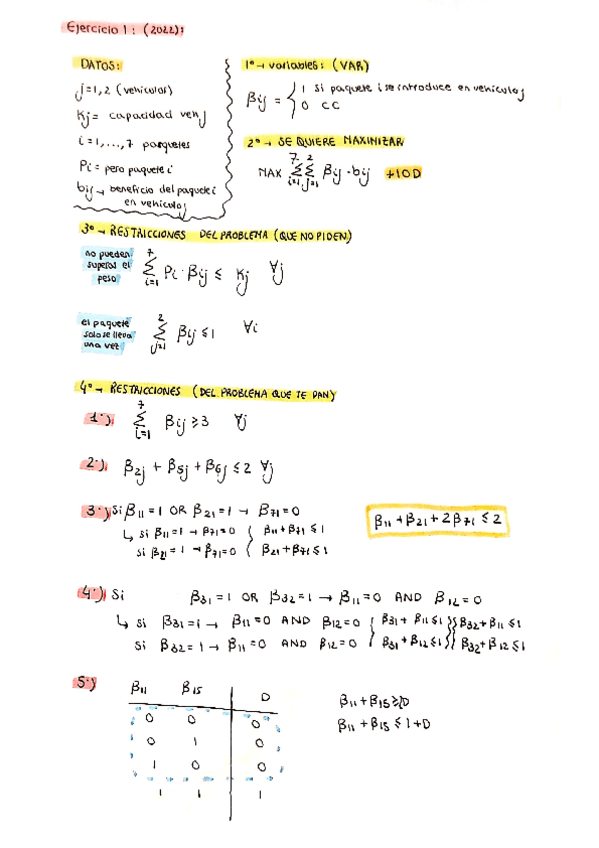 Ejercicio 1: (2022):
DATOS:
j=1,2 (vehiculos)
Kj = capacidad vehj
i=1,...,7 paquetes
Pi = peso paquete i
bij → beneficio del paquete i
en vehiculo j
1º → variables: (VAR)
βij = { 1 si paquete i se introduce en vehiculo j
0 CC
2º → SE QUIERE MAXIMIZAR
MAX 7 Σ i=1 2 Σ j=1 βij · bij +10D
3º → RESTRICCIONES DEL PROBLEMA (QUE NO PIDEN)
no pueden
superar el
peso
7 Σ i=1 Pi · βij ≤ Kj ∀j
el paquete
solo se lleva
una vez
2 Σ j=1 βij ≤ 1 ∀i
4º → RESTRICCIONES (DEL PROBLEMA QUE TE DAN)
1·). 7 Σ i=1 βij ≥ 3 ∀j
2·). β2j + β5j + β6j ≤ 2 ∀j
3·) Si β11 = 1 OR β21 = 1 → β71 = 0
↳ si β11 = 1 → β71 = 0 { β11 + β71 ≤ 1
si β21 = 1 → β71 = 0 { β21 + β71 ≤ 1
β11 + β21 + 2β71 ≤ 2
4·) Si β31 = 1 OR β32 = 1 → β11 = 0 AND β12 = 0
↳ si β31 = 1 → β11 = 0 AND β12 = 0 { β31 + β11 ≤ 1 } { β32 + β11 ≤ 1
si β32 = 1 → β11 = 0 AND β12 = 0 { β31 + β12 ≤ 1 } { β32 + β12 ≤ 1
5·)
β11 β15 D
0 0 0
0 1 0
1 0 0
1 1 1
β11 + β15 ≥ 2D
β11 + β15 ≤ 1 + D